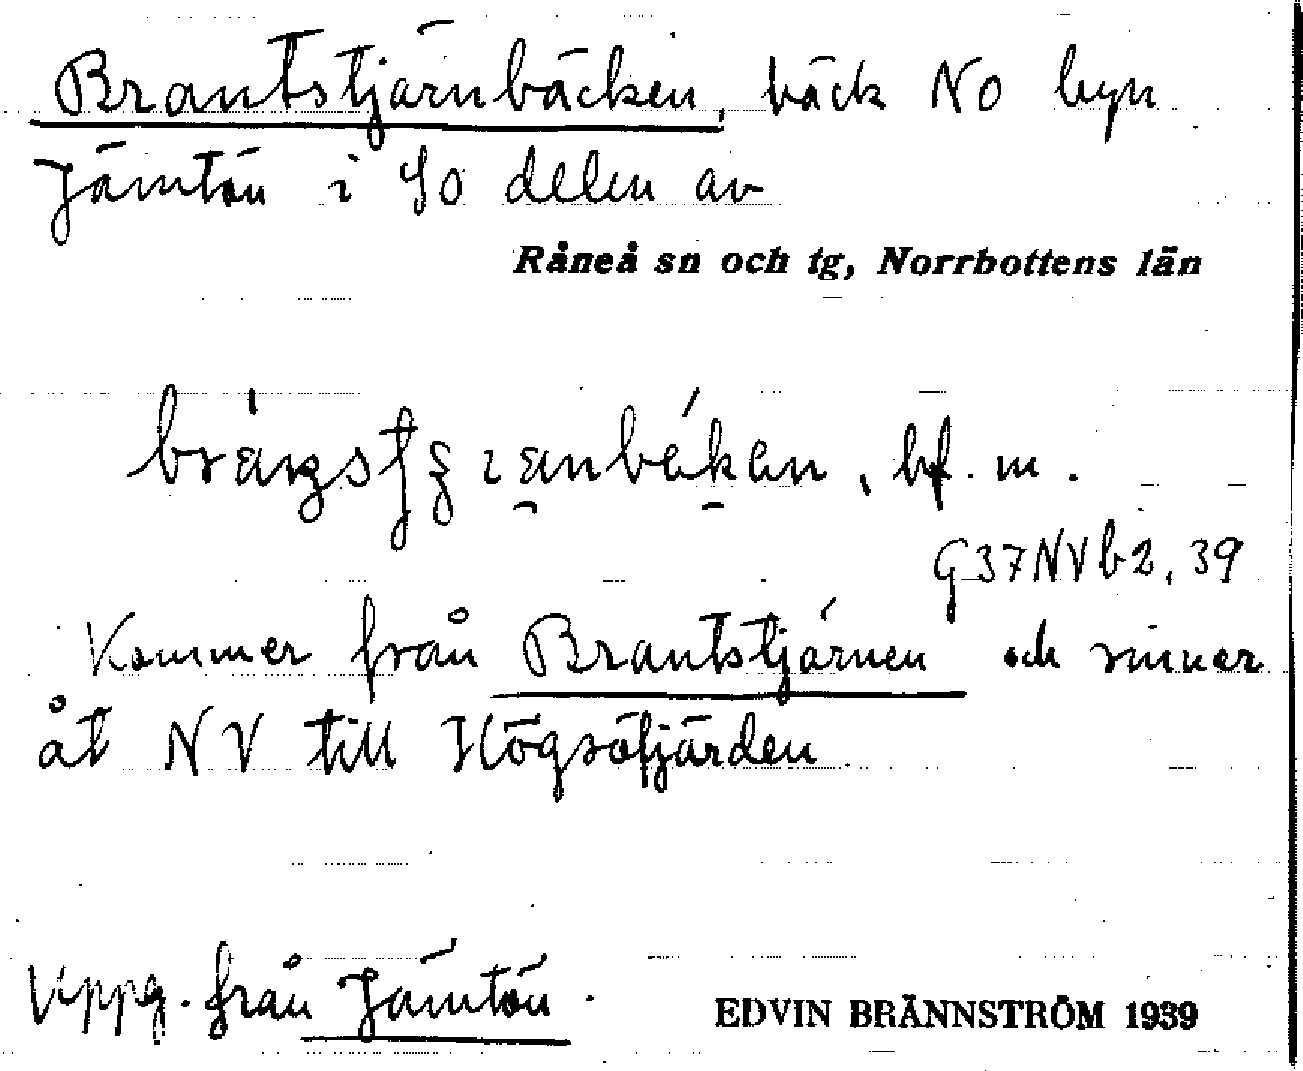 Brantstjärnbäcken, bäck NO byn
Jämtön i SO delen av
Råneå sn och tg, Norrbottens län
bf. m.
G37NVb2, 39
Kommer från Brantstjärnen och rinner
åt NV till Högsöfjärden
Uppg. från Jämtön.
EDVIN BRÄNNSTRÖM 1939